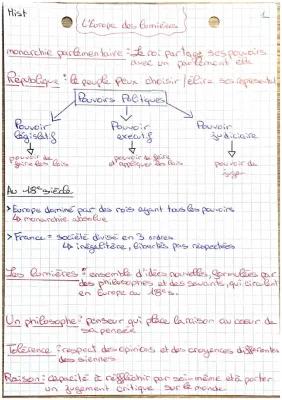 Hist
L'Europe des lumières
1
monarchie parlementaire : Le roi partage ses pouvoirs
avec un parlement élu
République : le peuple peux choisir / élire ses représentants
Pouvoirs Politiques
Pouvoir législatif
Pouvoir executif
Pouvoir judiciaire
pouvoir de faire des lois
pouvoir de faire d'appliquer les lois
pouvoir de juger
Au 18e siècle
> Europe dominé par des rois ayant tous les pouvoirs
↳ monarchie absolue
> France = société divisé en 3 ordres
↳ inégalitaire, libertés pas respectées
Les lumières : ensemble d'idées nouvelles, formulées par
des philosophes et des savants, qui circulent
en Europe au 18e s.
Un philosophe : penseur qui place la raison au coeur de
sa pensée
Tolérence : respect des opinions et des croyances différentes
des siennes
Raison : capacité à réfléchir par soi-même et à porter
un jugement critique sur le monde.